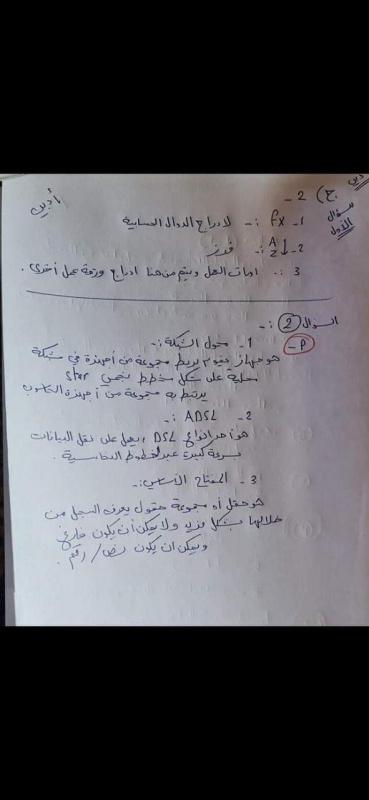 أدبي
ج) 2 -
سؤال الأول
1- fx :- لادراج الدوال الحسابية
2- A Z ↓ :- فرز
3 :- ادات العمل ويتم من هنا ادراج ورقة عمل أخرى .
السؤال (2) :-
P -
1 - محول الشبكة :-
هو جهاز يقوم بربط مجموعة من أجهزة في شبكة
محلية على شكل مخطط نجمي star
يرتبط به مجموعة من أجهزة الحاسوب
2 - ADSL :-
هو أحد انواع DSL ، يعمل على نقل البيانات
بسرعة كبيرة عبر الخطوط النحاسية .
3 - المفتاح الأساسي :-
هو حقل أو مجموعة حقول يعرف السجل من
خلالها بشكل فريد ولا يمكن أن يكون فارغ
ويمكن ان يكون نص / رقم .